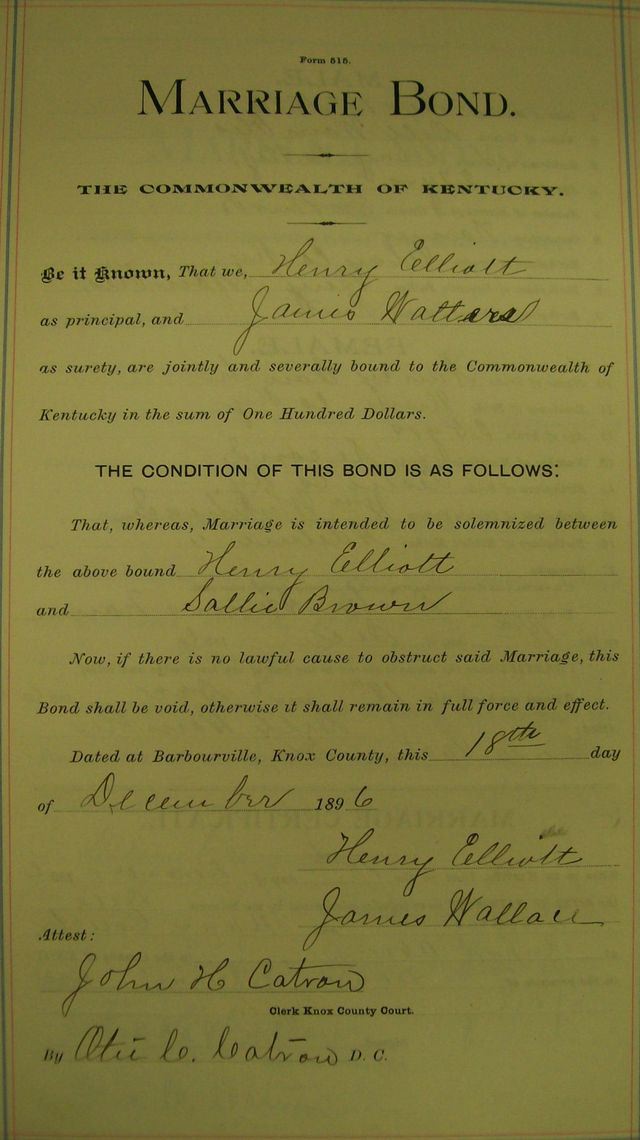 Form 515.
MARRIAGE BOND.
THE COMMONWEALTH OF KENTUCKY.
Be it Known, That we, Henry Elliott
as principal, and James
as surety, are jointly and severally bound to the Commonwealth of
Kentucky in the sum of One Hundred Dollars.
THE CONDITION OF THIS BOND IS AS FOLLOWS:
That, whereas, Marriage is intended to be solemnized between
the above bound Henry Elliott
and Sallie Brown
Now, if there is no lawful cause to obstruct said Marriage, this
Bond shall be void, otherwise it shall remain in full force and effect.
Dated at Barbourville, Knox County, this 18th day
of December 1896
Henry Elliott
James Wallace
Attest:
John H Catron
Clerk Knox County Court.
By C. Catron D. C.